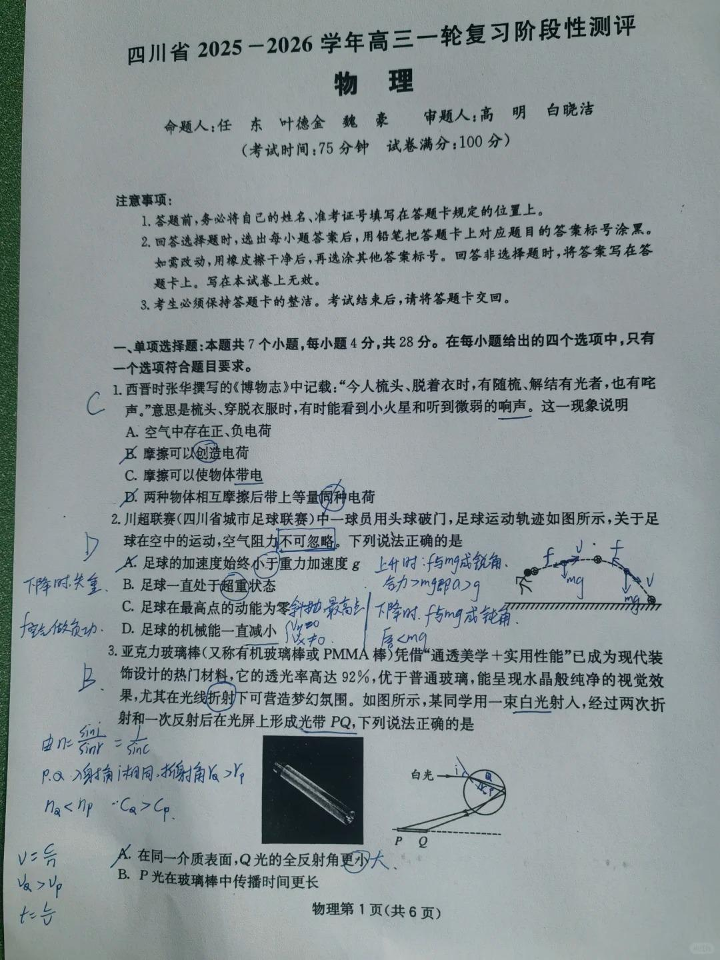 四川省 2025－2026 学年高三一轮复习阶段性测评
物 理
命题人:任 东 叶德金 魏 豪 审题人:高 明 白晓洁
(考试时间:75 分钟 试卷满分:100 分)
注意事项:
1. 答题前,务必将自己的姓名、准考证号填写在答题卡规定的位置上。
2. 回答选择题时,选出每小题答案后,用铅笔把答题卡上对应题目的答案标号涂黑。
如需改动,用橡皮擦干净后,再选涂其他答案标号。回答非选择题时,将答案写在答
题卡上。写在本试卷上无效。
3. 考生必须保持答题卡的整洁。考试结束后,请将答题卡交回。
一、单项选择题:本题共 7 个小题,每小题 4 分,共 28 分。在每小题给出的四个选项中,只有
一个选项符合题目要求。
C
1. 西晋时张华撰写的《博物志》中记载:“今人梳头、脱着衣时,有随梳、解结有光者,也有咤
声。”意思是梳头、穿脱衣服时,有时能看到小火星和听到微弱的响声。这一现象说明
A. 空气中存在正、负电荷
B. 摩擦可以创造电荷
C. 摩擦可以使物体带电
D. 两种物体相互摩擦后带上等量同种电荷
D
2. 川超联赛(四川省城市足球联赛)中一球员用头球破门,足球运动轨迹如图所示,关于足
球在空中的运动,空气阻力不可忽略。下列说法正确的是
A. 足球的加速度始终小于重力加速度 g
上升时:f与mg成锐角
合力>mg即a>g
下降时失重.
B. 足球一直处于超重状态
C. 足球在最高点的动能为零
斜抛最高点
Vy=0
Vx≠0.
下降时.f与mg成钝角.
D. 足球的机械能一直减小
F合<mg
f mg v
f mg v
B.
3. 亚克力玻璃棒(又称有机玻璃棒或 PMMA 棒)凭借“通透美学＋实用性能”已成为现代装
饰设计的热门材料,它的透光率高达 92%,优于普通玻璃,能呈现水晶般纯净的视觉效
果,尤其在光线折射下可营造梦幻氛围。如图所示,某同学用一束白光射入,经过两次折
射和一次反射后在光屏上形成光带 PQ,下列说法正确的是
由n=sini/sinr=1/sinC
P.Q入射角i相同,折射角rQ>rP
nQ<nP ∴CQ>CP.
白光
i
Q
P
P Q
A. 在同一介质表面,Q 光的全反射角更小
大.
B. P 光在玻璃棒中传播时间更长
v=c/n
vQ>vP
物理第 1 页(共 6 页)